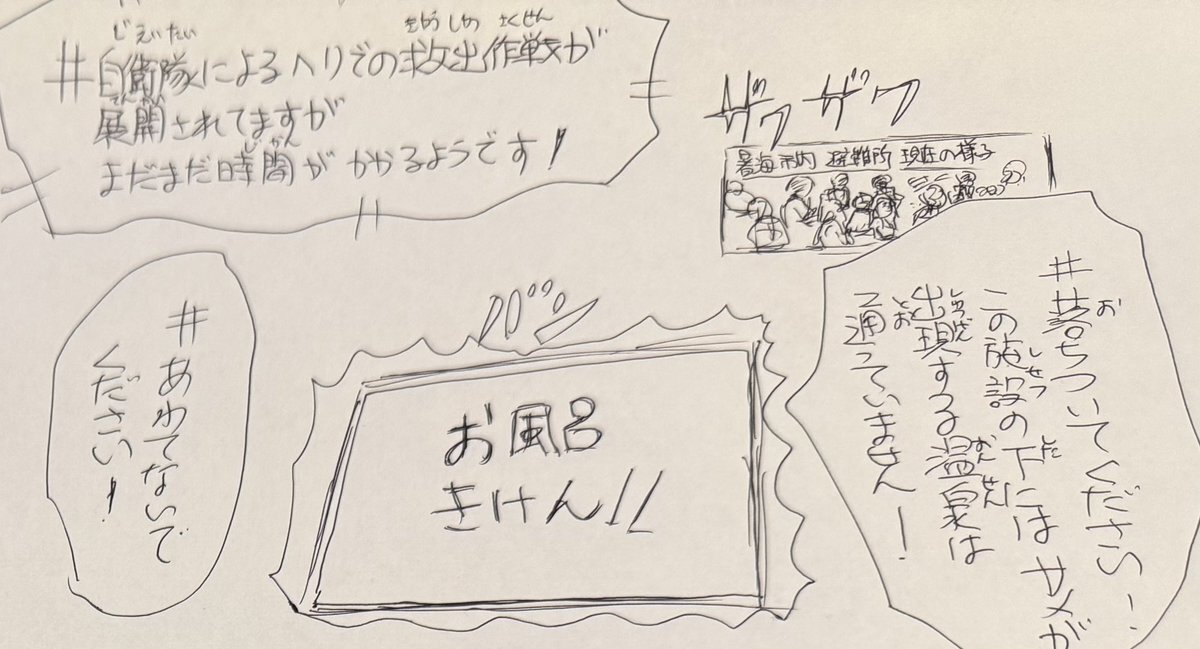 じえいたい きゅうしゅつ さくせん
#自衛隊によるヘリでの救出作戦が
てんかい
展開されてますが
じかん
まだまだ時間がかかるようです!
ザワザワ
暑海市内 避難所 現在の様子
お
#落ちついてください!
しせつ した
この施設の下にはサメが
しゅつげん おんせん
出現する温泉は
とお
通っていません!
バン
お風呂
きけん!!
#あわてないで
ください!